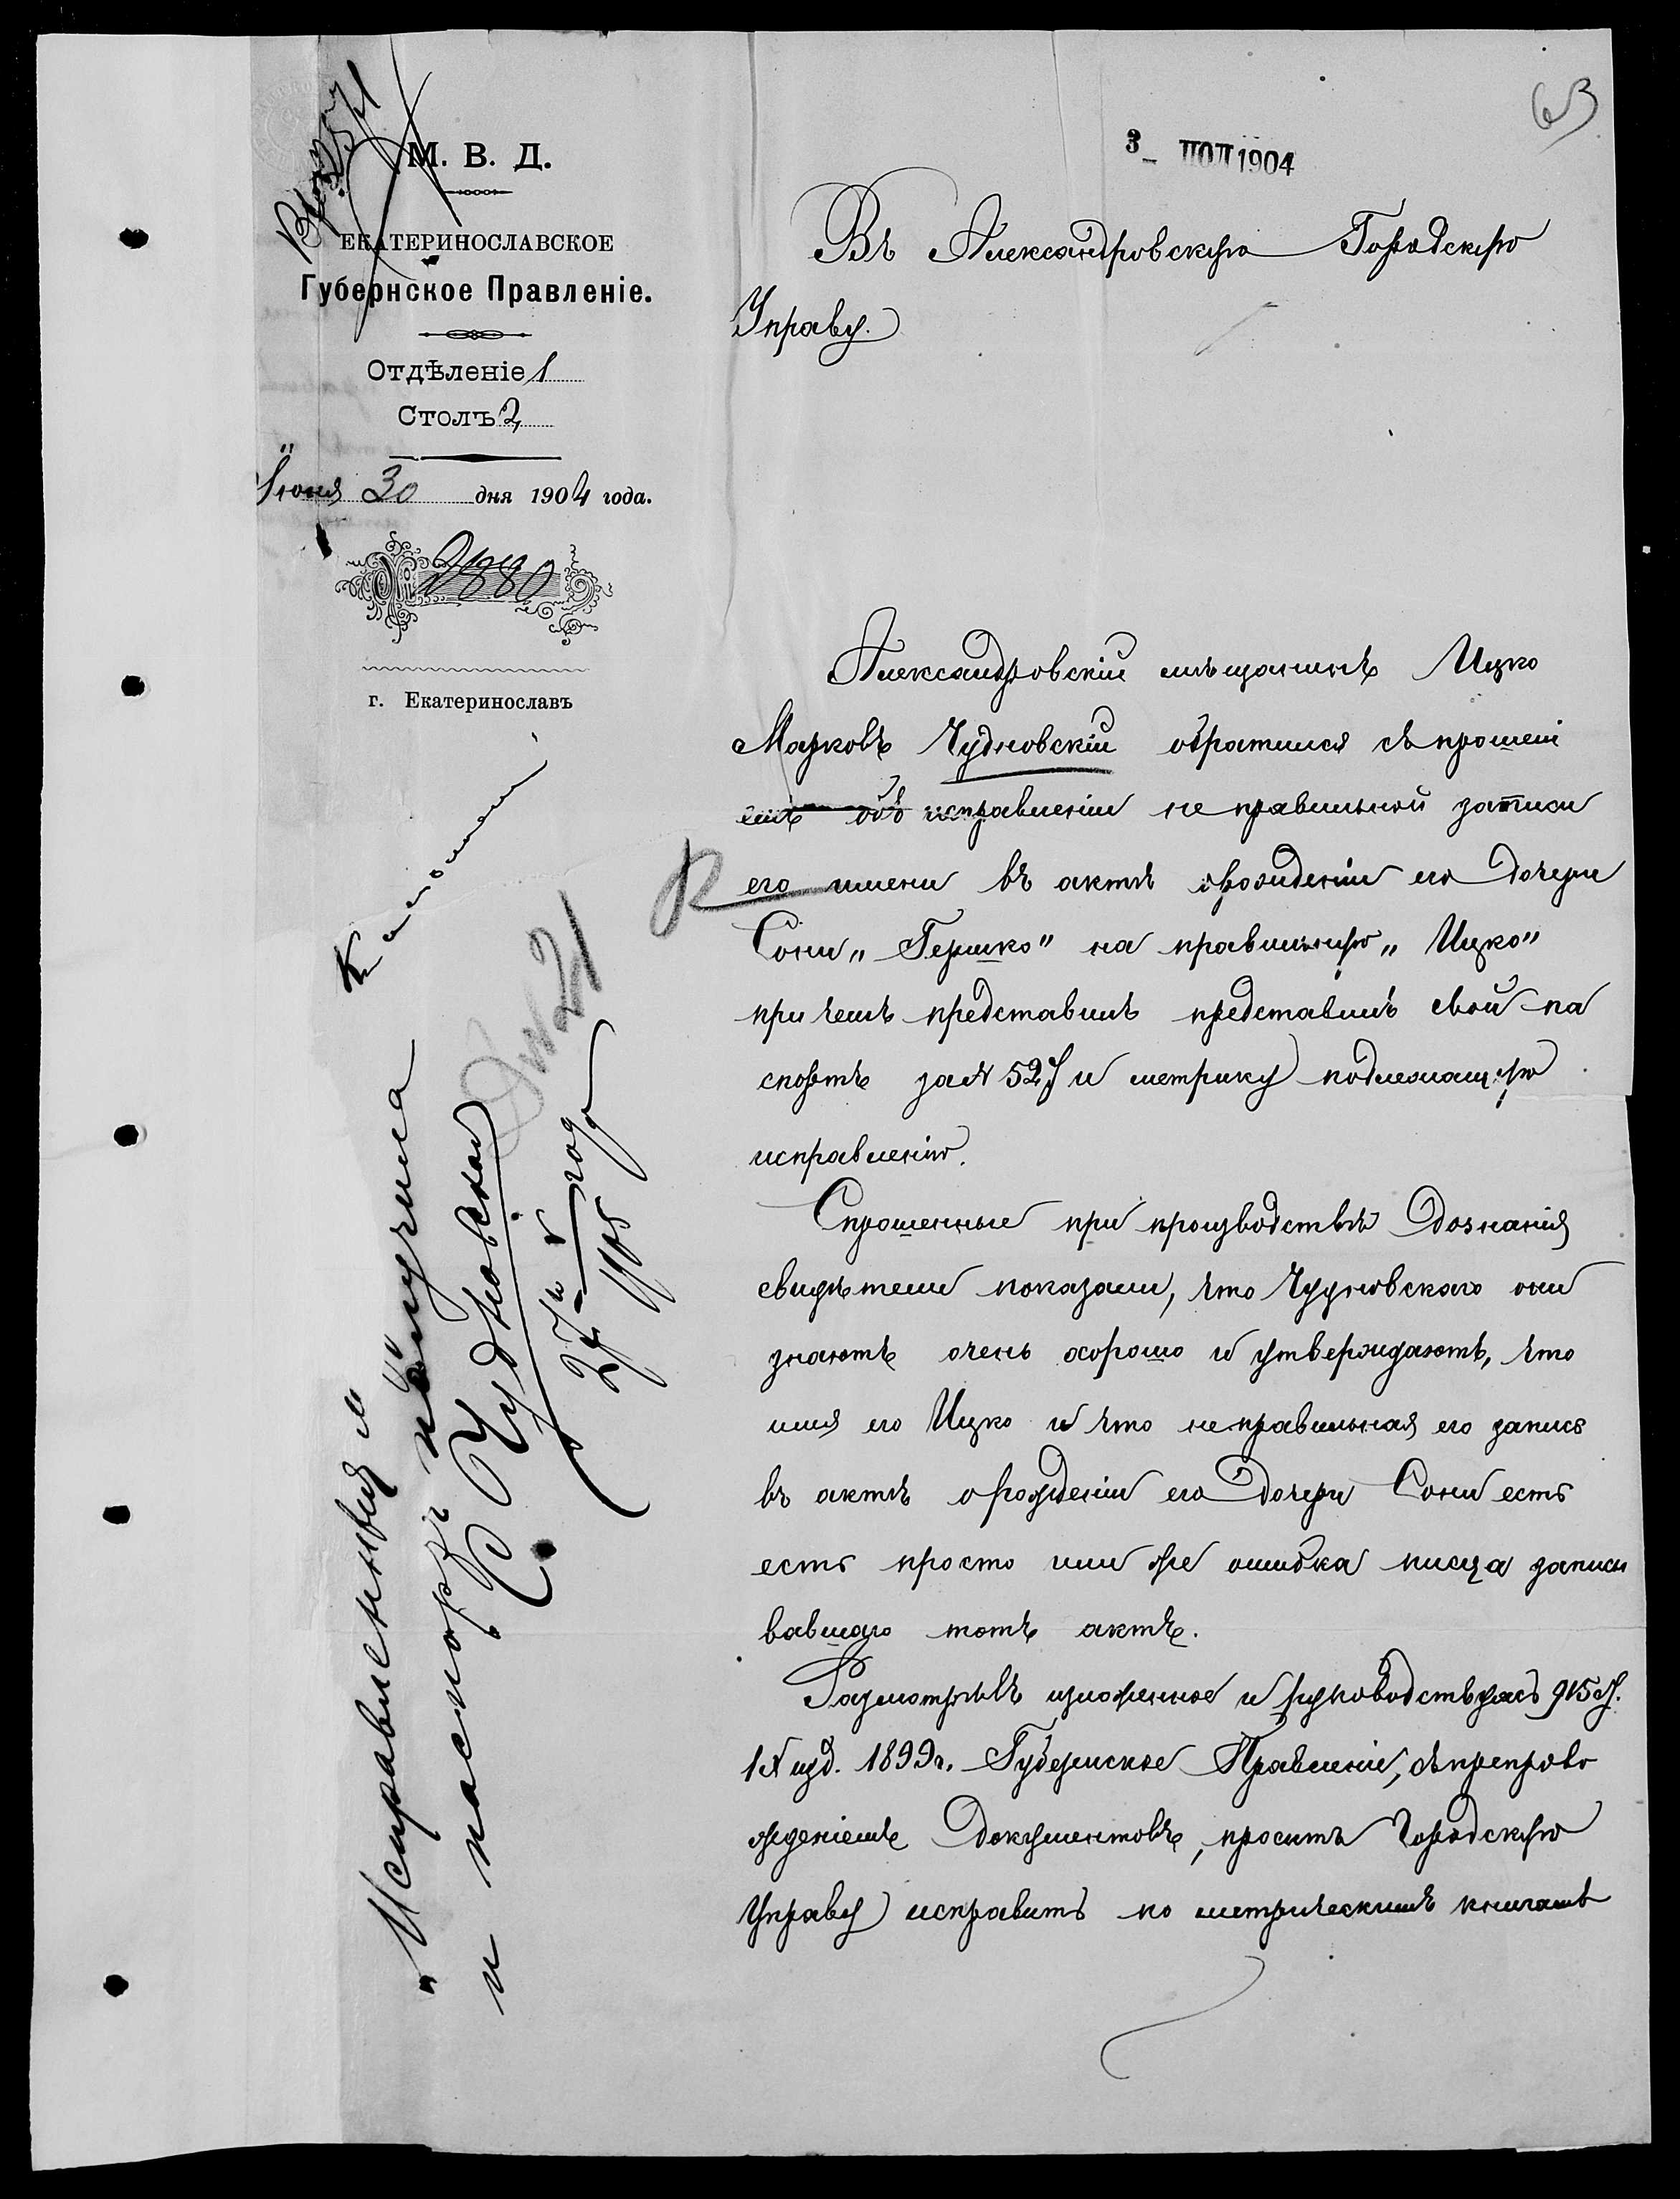 63
3 - ІЮЛ 1904
М. В. Д.
ЕКАТЕРИНОСЛАВСКОЕ
Губернское Правленіе.
Отдѣленіе 1
Столъ 2
Іюня 30 дня 1904 года.
№ 2880
г. Екатеринославъ
Въ Александровскую Городскую
Управу.
Александровскій мѣщанинъ Ицко
Марковъ Чудновскій обратился съ прошені
емъ объ исправленіи не правильной записи
его имени въ актѣ о рожденіи его дочери
Сони „Гершко" на правильную „Ицко"
при чемъ представилъ представилъ свой па
спортъ за № 527 и метрику подлежащую
исправленію.
Спрошенные при производствѣ дознанія
свидѣтели показали, что Чудновскаго они
знаютъ очень хорошо и утверждаютъ, что
имя его Ицко и что неправильная его запись
въ актѣ о рожденіи его дочери Сони есть
есть просто или же ошибка писца записы
вавшаго тотъ актъ.
Разсмотрѣвъ изложенное и руководствуясь 915 ст.
IX изд. 1899 г. Губернское Правленіе, съ препрово
жденіемъ документовъ, проситъ Городскую
Управу исправить по метрическимъ книгамъ
„Исправленный м
и паспортъ получила
С Чудновская
27го
1905 года